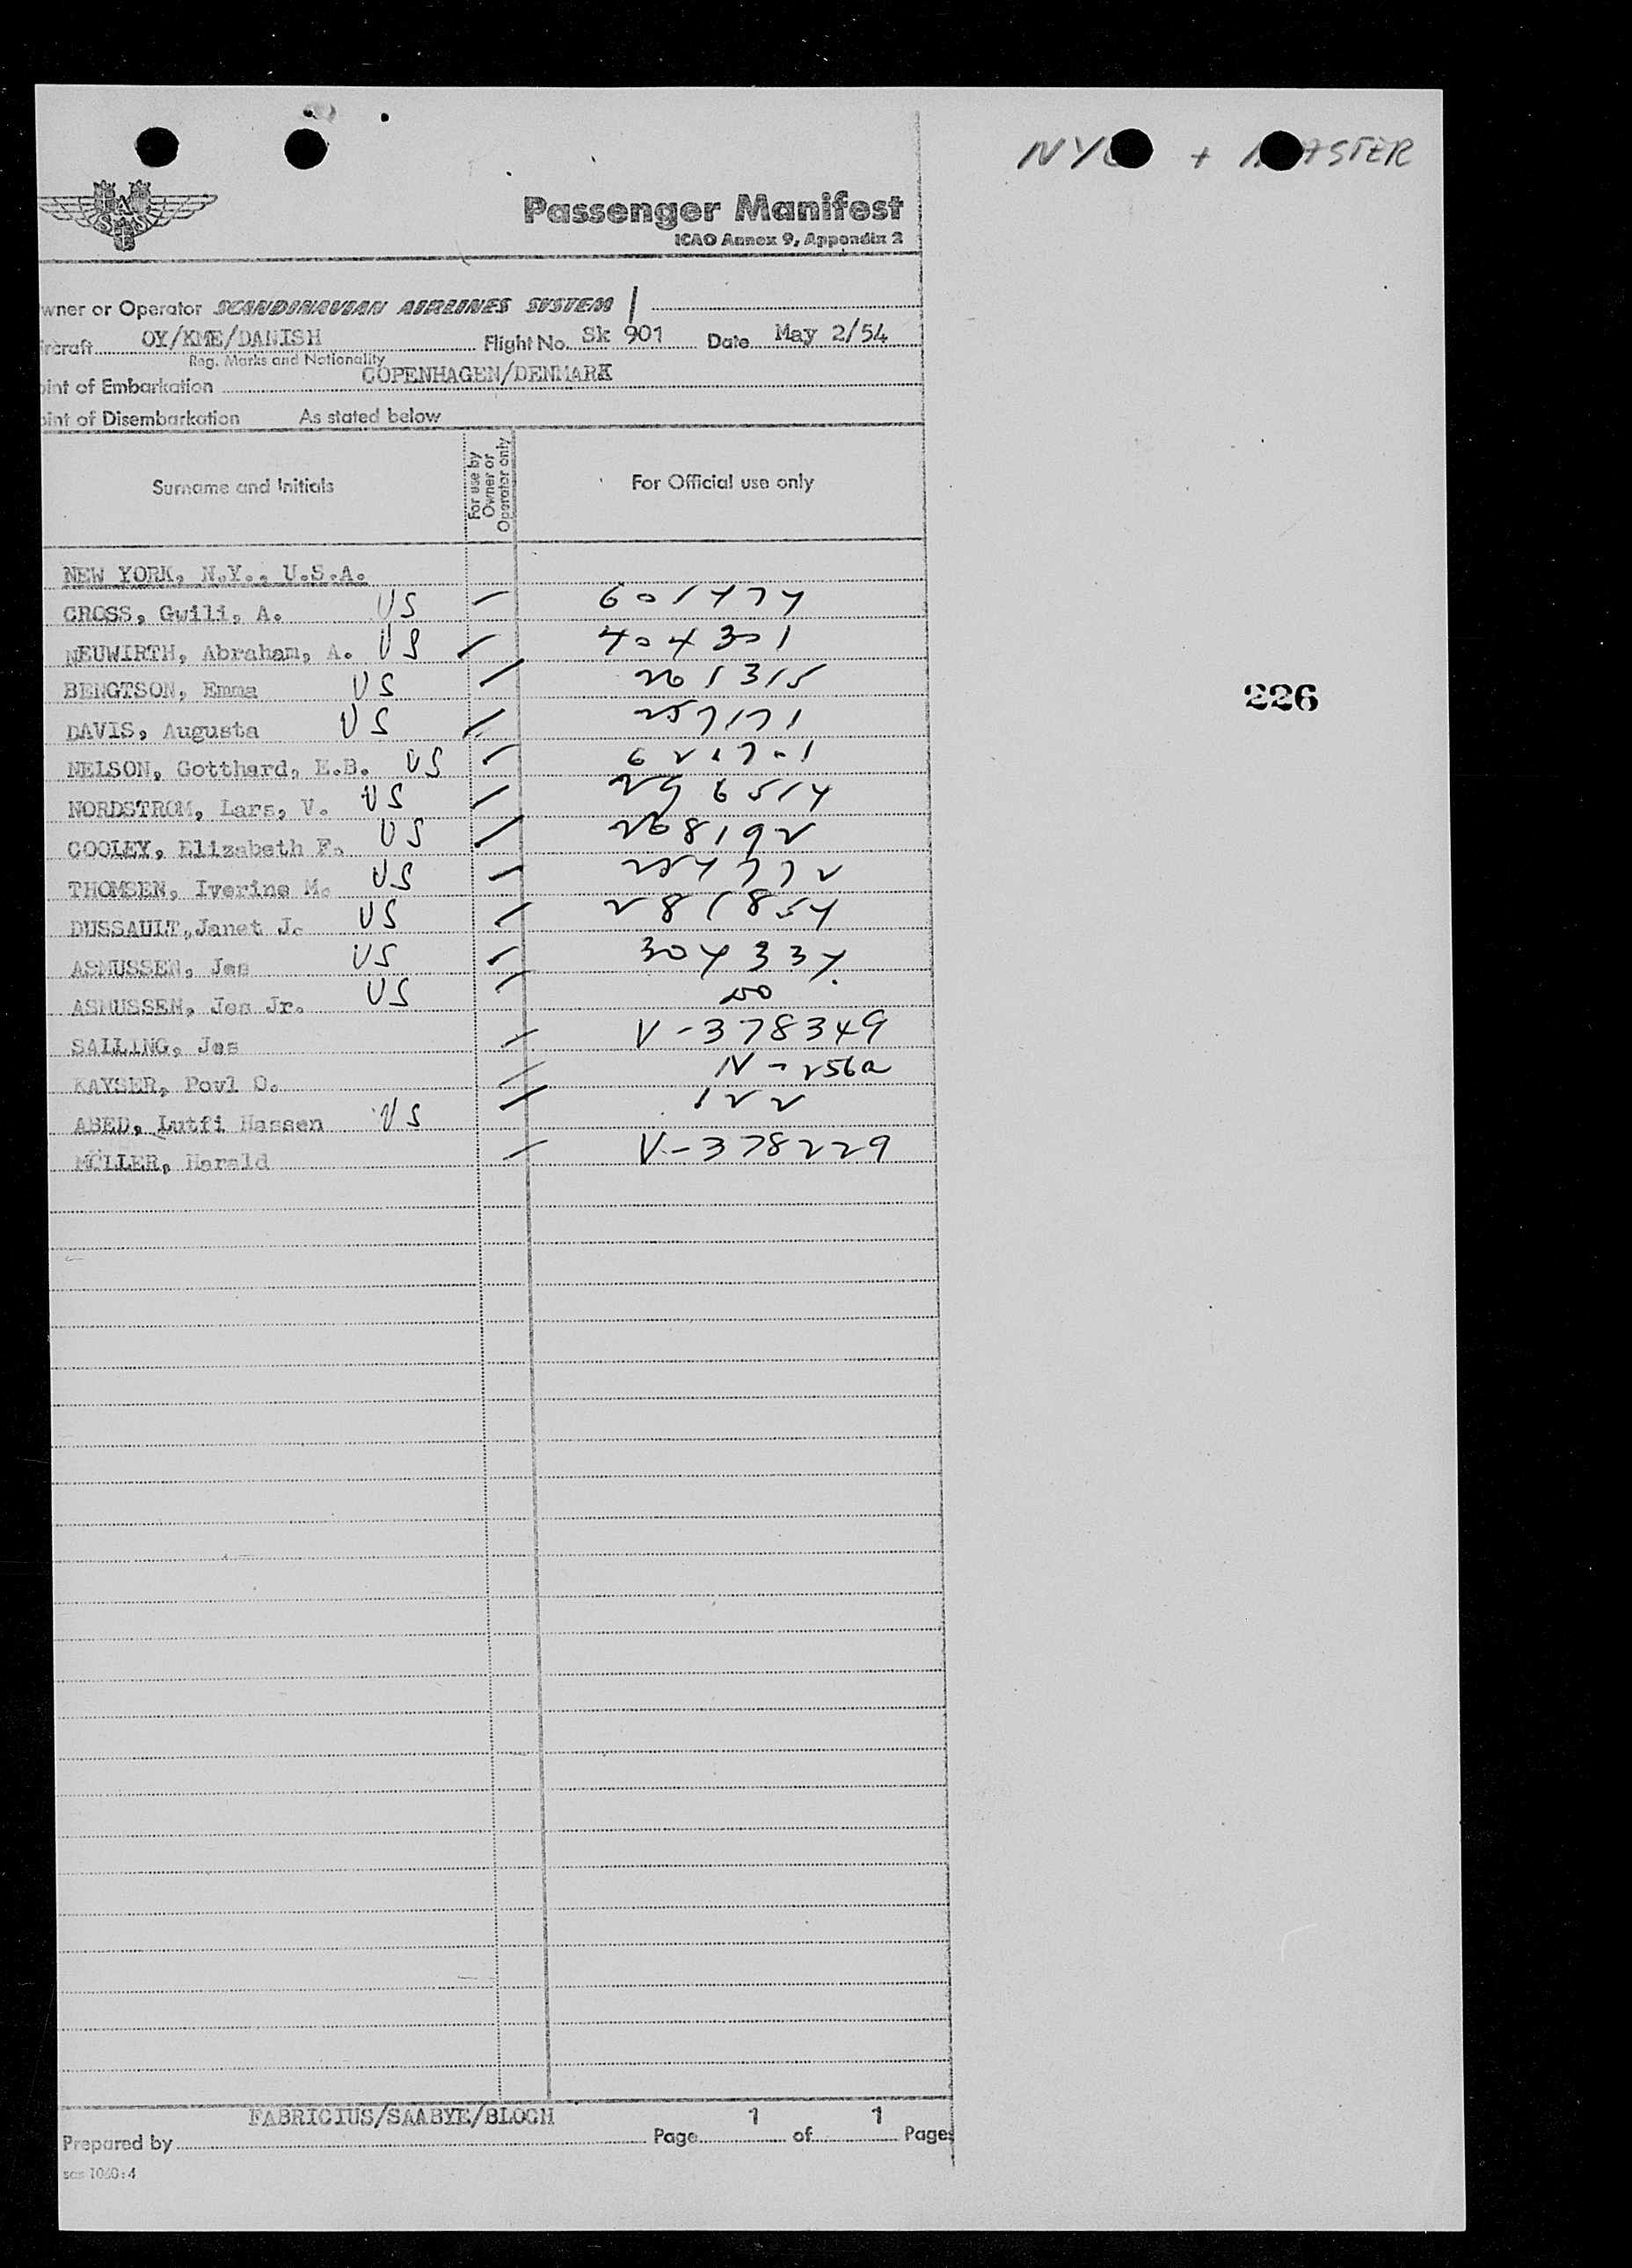 NYC + MASTER
SAS
Passenger Manifest
ICAO Annex 9, Appendix 2
wner or Operator SCANDINAVIAN AIRLINES SYSTEM
ircraft OY/KME/DANISH Flight No. Sk 901 Date May 2/54
Reg. Marks and Nationality
oint of Embarkation COPENHAGEN/DENMARK
oint of Disembarkation As stated below
Surname and Initials For use by Owner or Operator only For Official use only
NEW YORK, N.Y., U.S.A.
CROSS, Gwili, A. US 601474
NEUWIRTH, Abraham, A. US 404301
BENGTSON, Emma US 261315
226
DAVIS, Augusta US 257171
NELSON, Gotthard, E.B. US 621701
NORDSTROM, Lars, V. US 296514
COOLEY, Elizabeth F. US 268192
THOMSEN, Iverine M. US 254772
DUSSAULT, Janet J. US 281854
ASMUSSEN, Jes US 304334
ASMUSSEN, Jes Jr. US
SAILING, Jes V-378349
KAYSER, Povl O. IV-256a
ABED, Lutfi Hassen US 122
MÖLLER, Harald V-378229
FABRICIUS/SAABYE/BLOCH
Prepared by Page 1 of 1 Pages
sas 1060:4